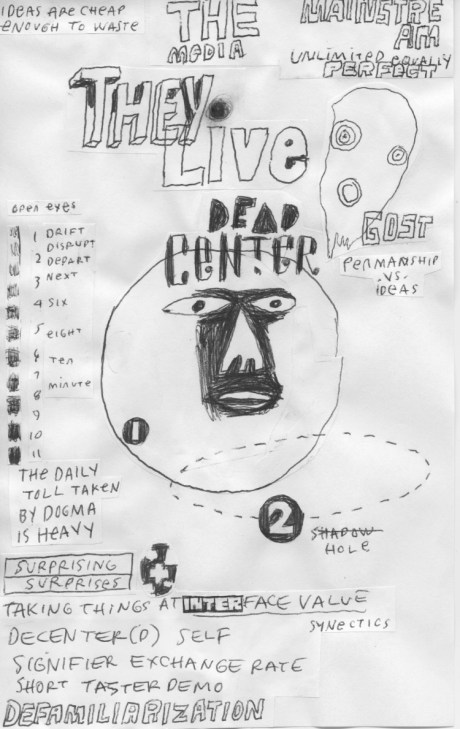 IDEAS ARE CHEAP
ENOUGH TO WASTE
THE
MEDIA
MAINSTRE
AM
UNLIMITED EQUALLY
PERFECT
THEY
LIVE
DEAD
CENTER
GOST
PERMANSHIP
.VS.
IDEAS
OPEN EYES
1 DRIFT
DISRUPT
2 DEPART
3 NEXT
4 SIX
5 EIGHT
6 TEN
7 MINUTE
8
9
10
11
1
2
SHADOW
HOLE
THE DAILY
TOLL TAKEN
BY DOGMA
IS HEAVY
SURPRISING
SURPRISES
TAKING THINGS AT INTERFACE VALUE
SYNECTICS
DECENTER(D) SELF
SIGNIFIER EXCHANGE RATE
SHORT TASTER DEMO
DEFAMILIARIZATION